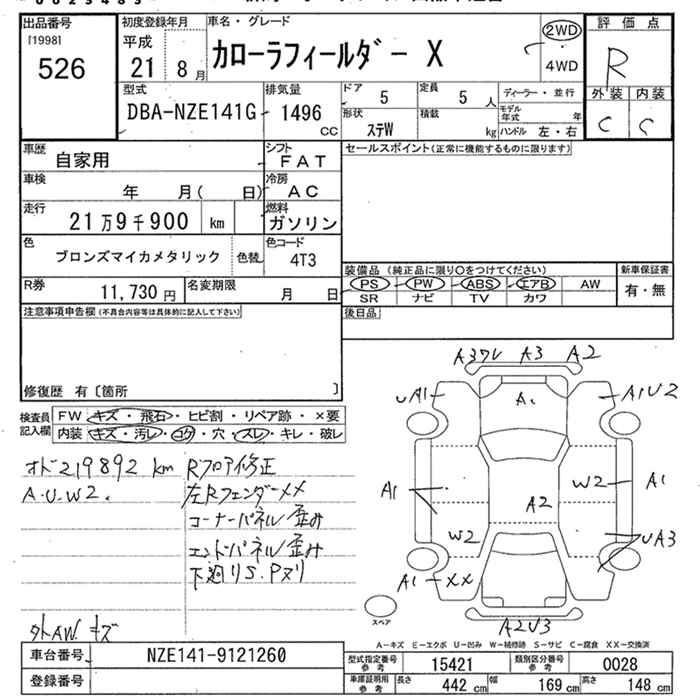 出品番号
[1998]
526
初度登録年月
平成
21 8月
車名・グレード
カローラフィールダー X
2WD
・
4WD
評価点
R
外装 内装
C C
型式
DBA-NZE141G
排気量
1496
cc
ドア
5
定員
5 人
形状
ステW
積載
kg
ディーラー・並行
モデル年式 年
ハンドル 左・右
車歴
自家用
シフト
FAT
車検
年 月( 日)
冷房
AC
走行
21万9千900 km
燃料
ガソリン
色
ブロンズマイカメタリック
色替
色コード
4T3
R券
11,730 円
名変期限
月 日
セールスポイント(正常に機能するものに限ります)
装備品 (純正品に限り〇をつけてください)
新車保証書
PS PW ABS エアB AW
SR ナビ TV カワ
有・無
後日品
注意事項申告欄(不具合内容等は具体的に記入して下さい)
修復歴 有〔箇所 〕
検査員記入欄
FW キズ・飛石・ヒビ割・リペア跡・×要
内装 キズ・汚レ・コゲ・穴・スレ・キレ・破レ
オド219892 km
A.U.W2.
外AW キズ
Rフロア修正
左Rフェンダー××
コーナーパネル歪み
エンドパネル歪み
下廻りS.Pヌリ
A3ワレ A3 A2
UA1 A1 A1U2
A1 W2 A1
A2
W2 UA3
A1 ××
A2U3
スペア
A-キズ E-エクボ U-凹み W-補修跡 S-サビ C-腐食 XX-交換済
車台番号
NZE141-9121260
登録番号
型式指定番号 参考
15421
類別区分番号 参考
0028
車庫証明用 参考
長さ 442 cm 幅 169 cm 高さ 148 cm